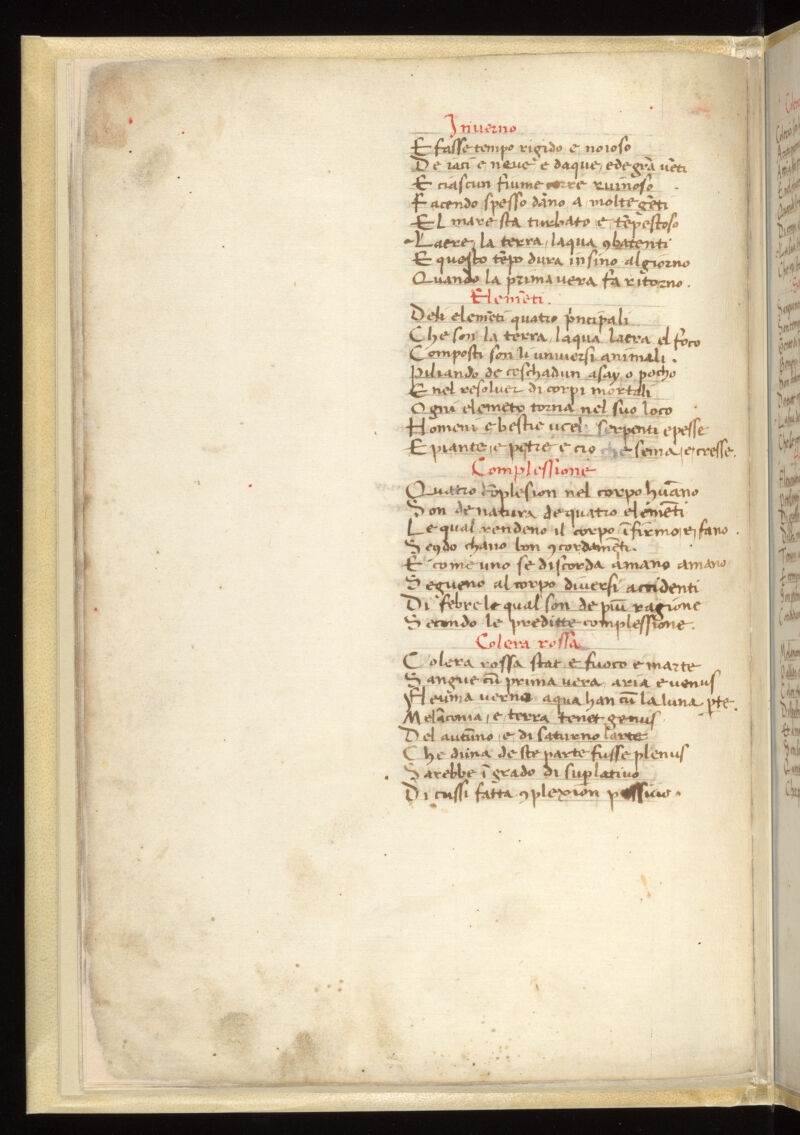 Inuerno
E fasse tempo rigido e noioso
De iaci e neue e daque, e de grā uēti
E ciascun fiume corre ruinoso
Facendo spesso dāno a molte gēti
El mare sta turbato e tēpestoso
Laere, la terra, laqua ꝯbatenti
E questo tēpo dura insino al giorno
Quando la prima uera fa ritorno.
Elemēti.
Deli elemēti quatro pncipali
Che son la terra, laqua laera el foco
Composti son li uniuersi animali.
Piliando de ceschadun asay o pocho
E nel resoluer di corpi mortali
Ogni elemēto torna nel suo loco
Homeni e bestie ucel serpenti e pesse
E piante, e petre e cio che sema, e cresse.
Complessione
Quatro cōplesion nel corpo humano
Son de natura de quatro elemēti
Le qual rendeno il corpo īfirmo, e sano.
Segōdo chano lon ꝯcordamēti.
E come uno se discorda amano amano
Segueno al corpo diuersi accidenti
Di febre le qual son de piu ragione
Secondo le preditte complessione.
Colera rossa
Colera rossa stat e fuoco e marte
Sangue cū prima uera, aria e uenus
Fleuma uerno aqua han cū la luna pte.
Melāconia, e terra tenet genus
Del autūno, e di saturno larte
Che duna de ste parte fusse plenus
Sarebbe ī grado di suplatiuo
Di cussi fatta ꝯplexion